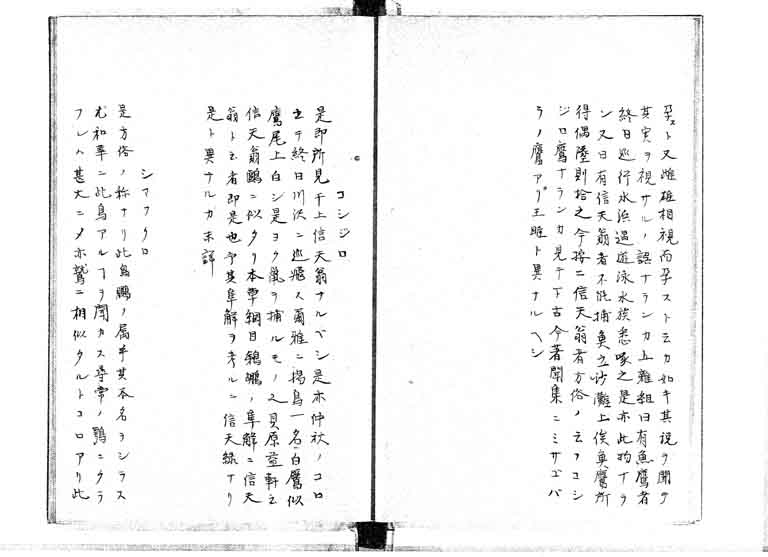 孕スト又雌雄相視而孕ストモ云カ如キ其説ヲ聞テ
其実ヲ視サルノ誤ナランカ五雜組曰有魚鷹者
終日巡行水浜遇遊泳水族悉啄之是亦此拘ナラ
ン又曰有信天翁者不能捕魚立沙灘上俟魚鷹所
得偶墜則拾之今按ニ信天翁者方俗ノ云フコシ
ジロ鷹ナランカ見于下古今著聞集ニミサゴバ
ラノ鷹アリ王雎ト異ナルヘシ
コシジロ
是即所見于上信天翁ナルベシ是亦仲秋ノコロ
出テ終日川沢ニ巡飛ス爾雅ニ楊鳥一名白鷢似
鷹尾上白シ是ヨク鼠ヲ捕ルモノ也貝原益軒云
信天翁鷗ニ似タリ本草綱目鵜鶘ノ集解ニ信天
翁ト云者即是也今其集解ヲ考ルニ信天縁ナリ
是ト異ナルカ未詳
シマフクロ
是方俗ノ称ナリ此鳥鵬ノ属乎其本名ヲシラス
尤和華ニ此鳥アルヿヲ聞カス尋常ノ鴞ニクラ
フレハ甚大ニメ亦鷲ニ相似タルトコロアリ此